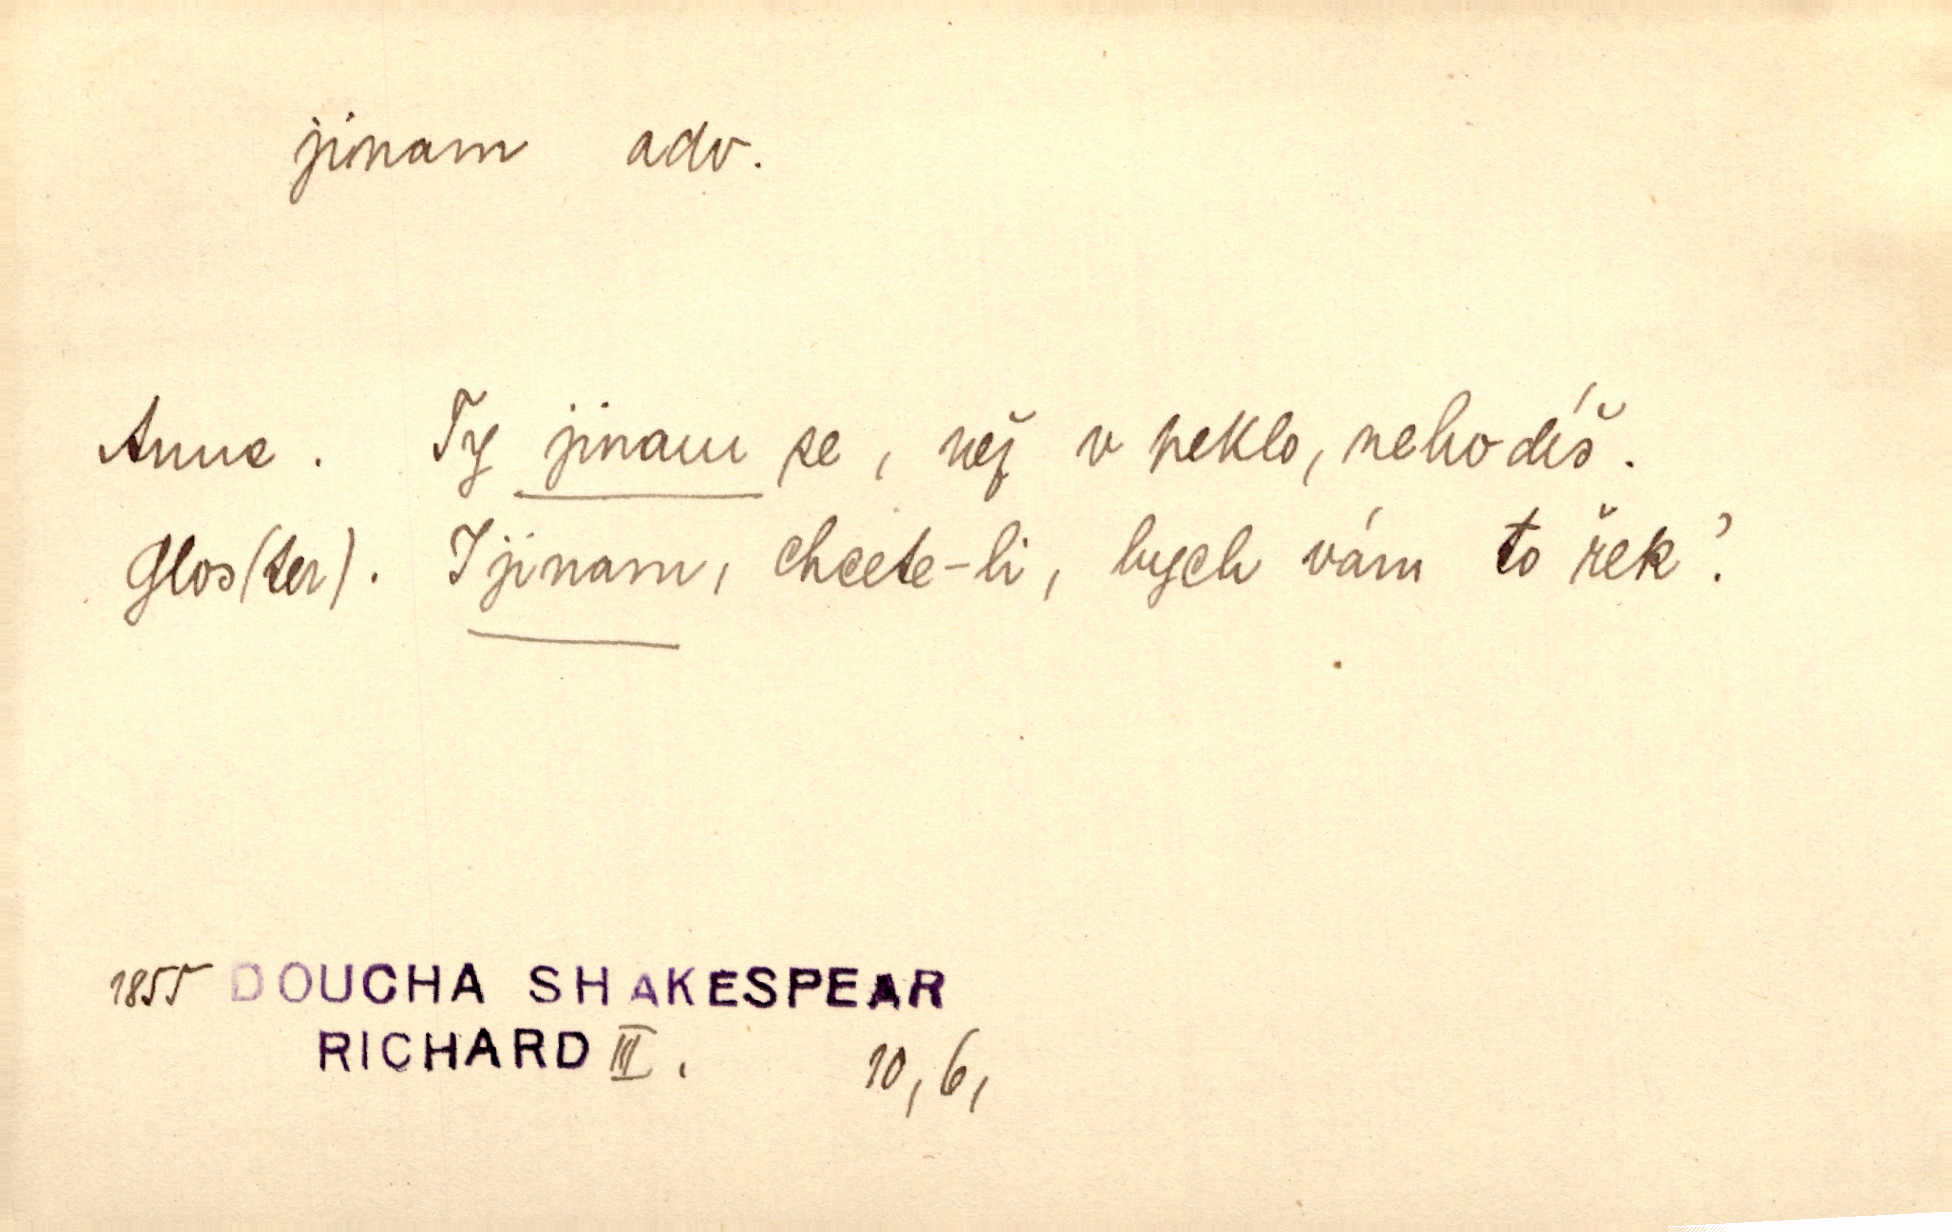 jinam adv.
Anna. Ty jinam se, než v peklo, nehodíš.
Glos(ter). I jinam, chcete-li, bych vám to řek?
1855 DOUCHA SHAKESPEAR
RICHARD III. 10, 6,